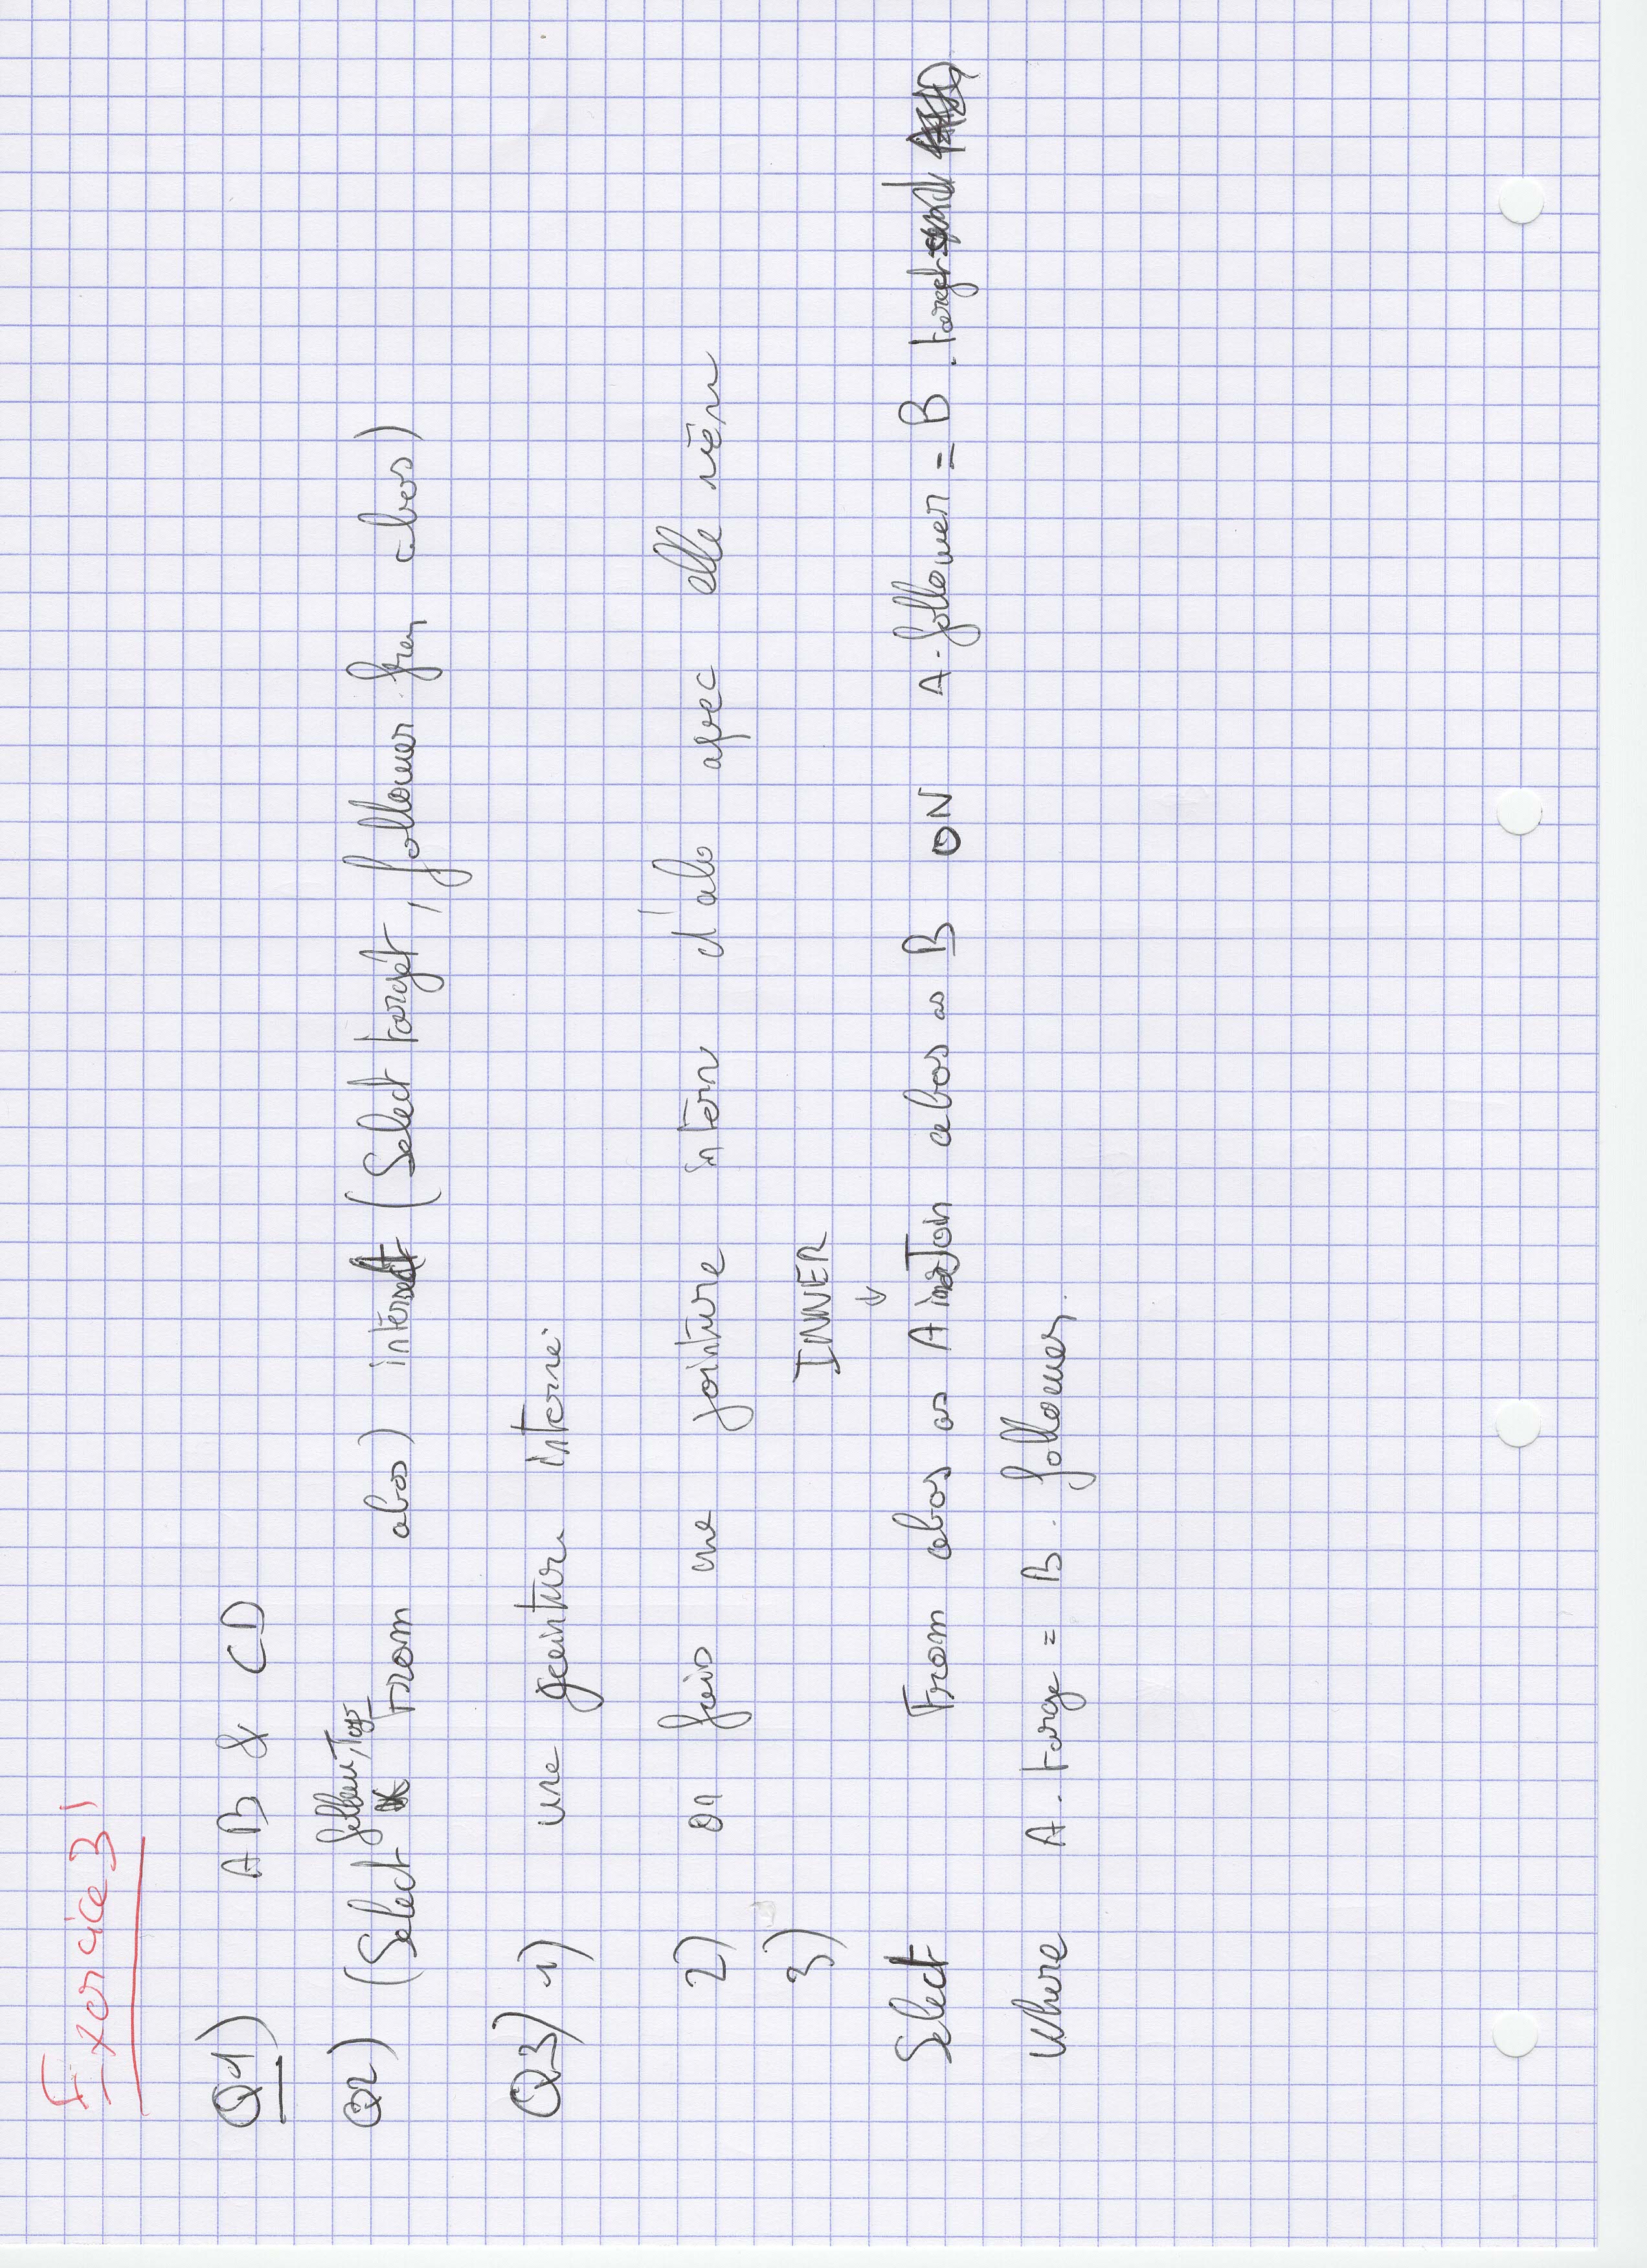 Exercice 3
Q1) AB & CD
follower, Targ
Q2) (Select From abos) intersect (Select target, follower from abos)
Q3) 1) une jointure interne.
2) on fais une jointure intern d'abo avec elle mêm
3) INNER
↓
Select From abos as A Join abos as B ON A.follower = B.target
Where A.targe = B.follower.